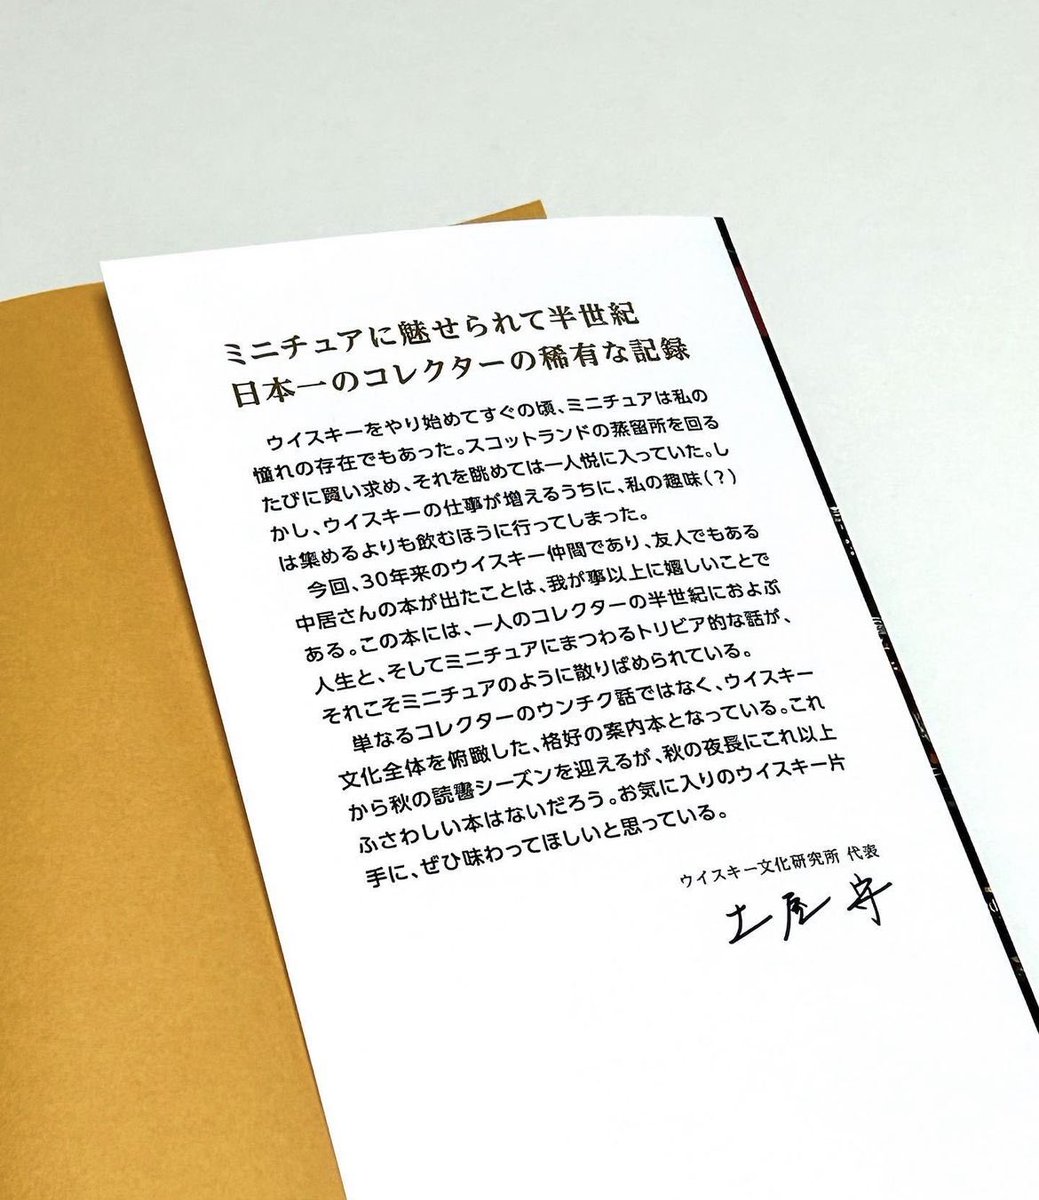 ミニチュアに魅せられて半世紀
日本一のコレクターの稀有な記録
ウイスキーをやり始めてすぐの頃、ミニチュアは私の
憧れの存在でもあった。スコットランドの蒸留所を回る
たびに買い求め、それを眺めては一人悦に入っていた。し
かし、ウイスキーの仕事が増えるうちに、私の趣味(？)
は集めるよりも飲むほうに行ってしまった。
今回、30年来のウイスキー仲間であり、友人でもある
中居さんの本が出たことは、我が事以上に嬉しいことで
ある。この本には、一人のコレクターの半世紀におよぶ
人生と、そしてミニチュアにまつわるトリビア的な話が、
それこそミニチュアのように散りばめられている。
単なるコレクターのウンチク話ではなく、ウイスキー
文化全体を俯瞰した、格好の案内本となっている。これ
から秋の読書シーズンを迎えるが、秋の夜長にこれ以上
ふさわしい本はないだろう。お気に入りのウイスキー片
手に、ぜひ味わってほしいと思っている。
ウイスキー文化研究所 代表
土屋 守